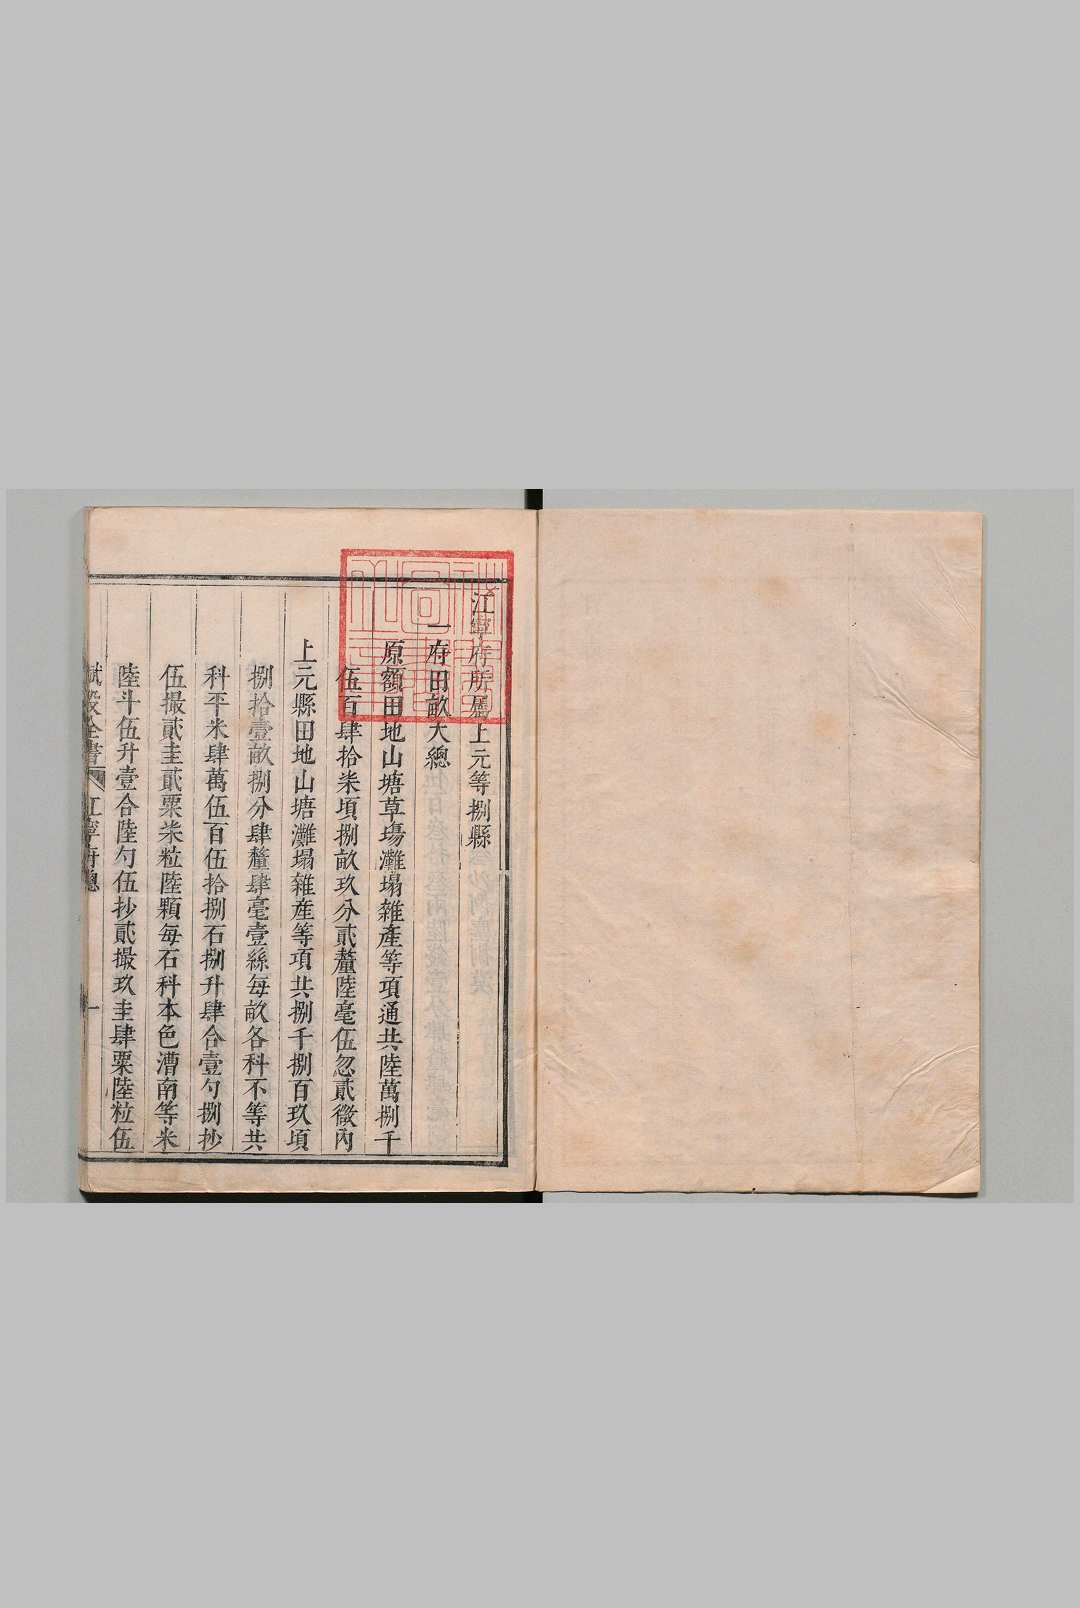 江寧府所屬上元等捌縣
一府田畝大總
原額田地山塘草塲灘塌雜產等項通共陸萬捌千
伍百肆拾柒項捌畝玖分貳釐陸毫伍忽貳微內
上元縣田地山塘灘塌雜產等項共捌千捌百玖項
捌拾壹畝捌分肆釐肆毫壹絲每畝各科不等共
科平米肆萬伍百伍拾捌石捌升肆合壹勺捌抄
伍撮貳圭貳粟柒粒陸顆每石科本色漕南等米
陸斗伍升壹合陸勺伍抄貳撮玖圭肆粟陸粒伍
賦役全書 江寧府總 一